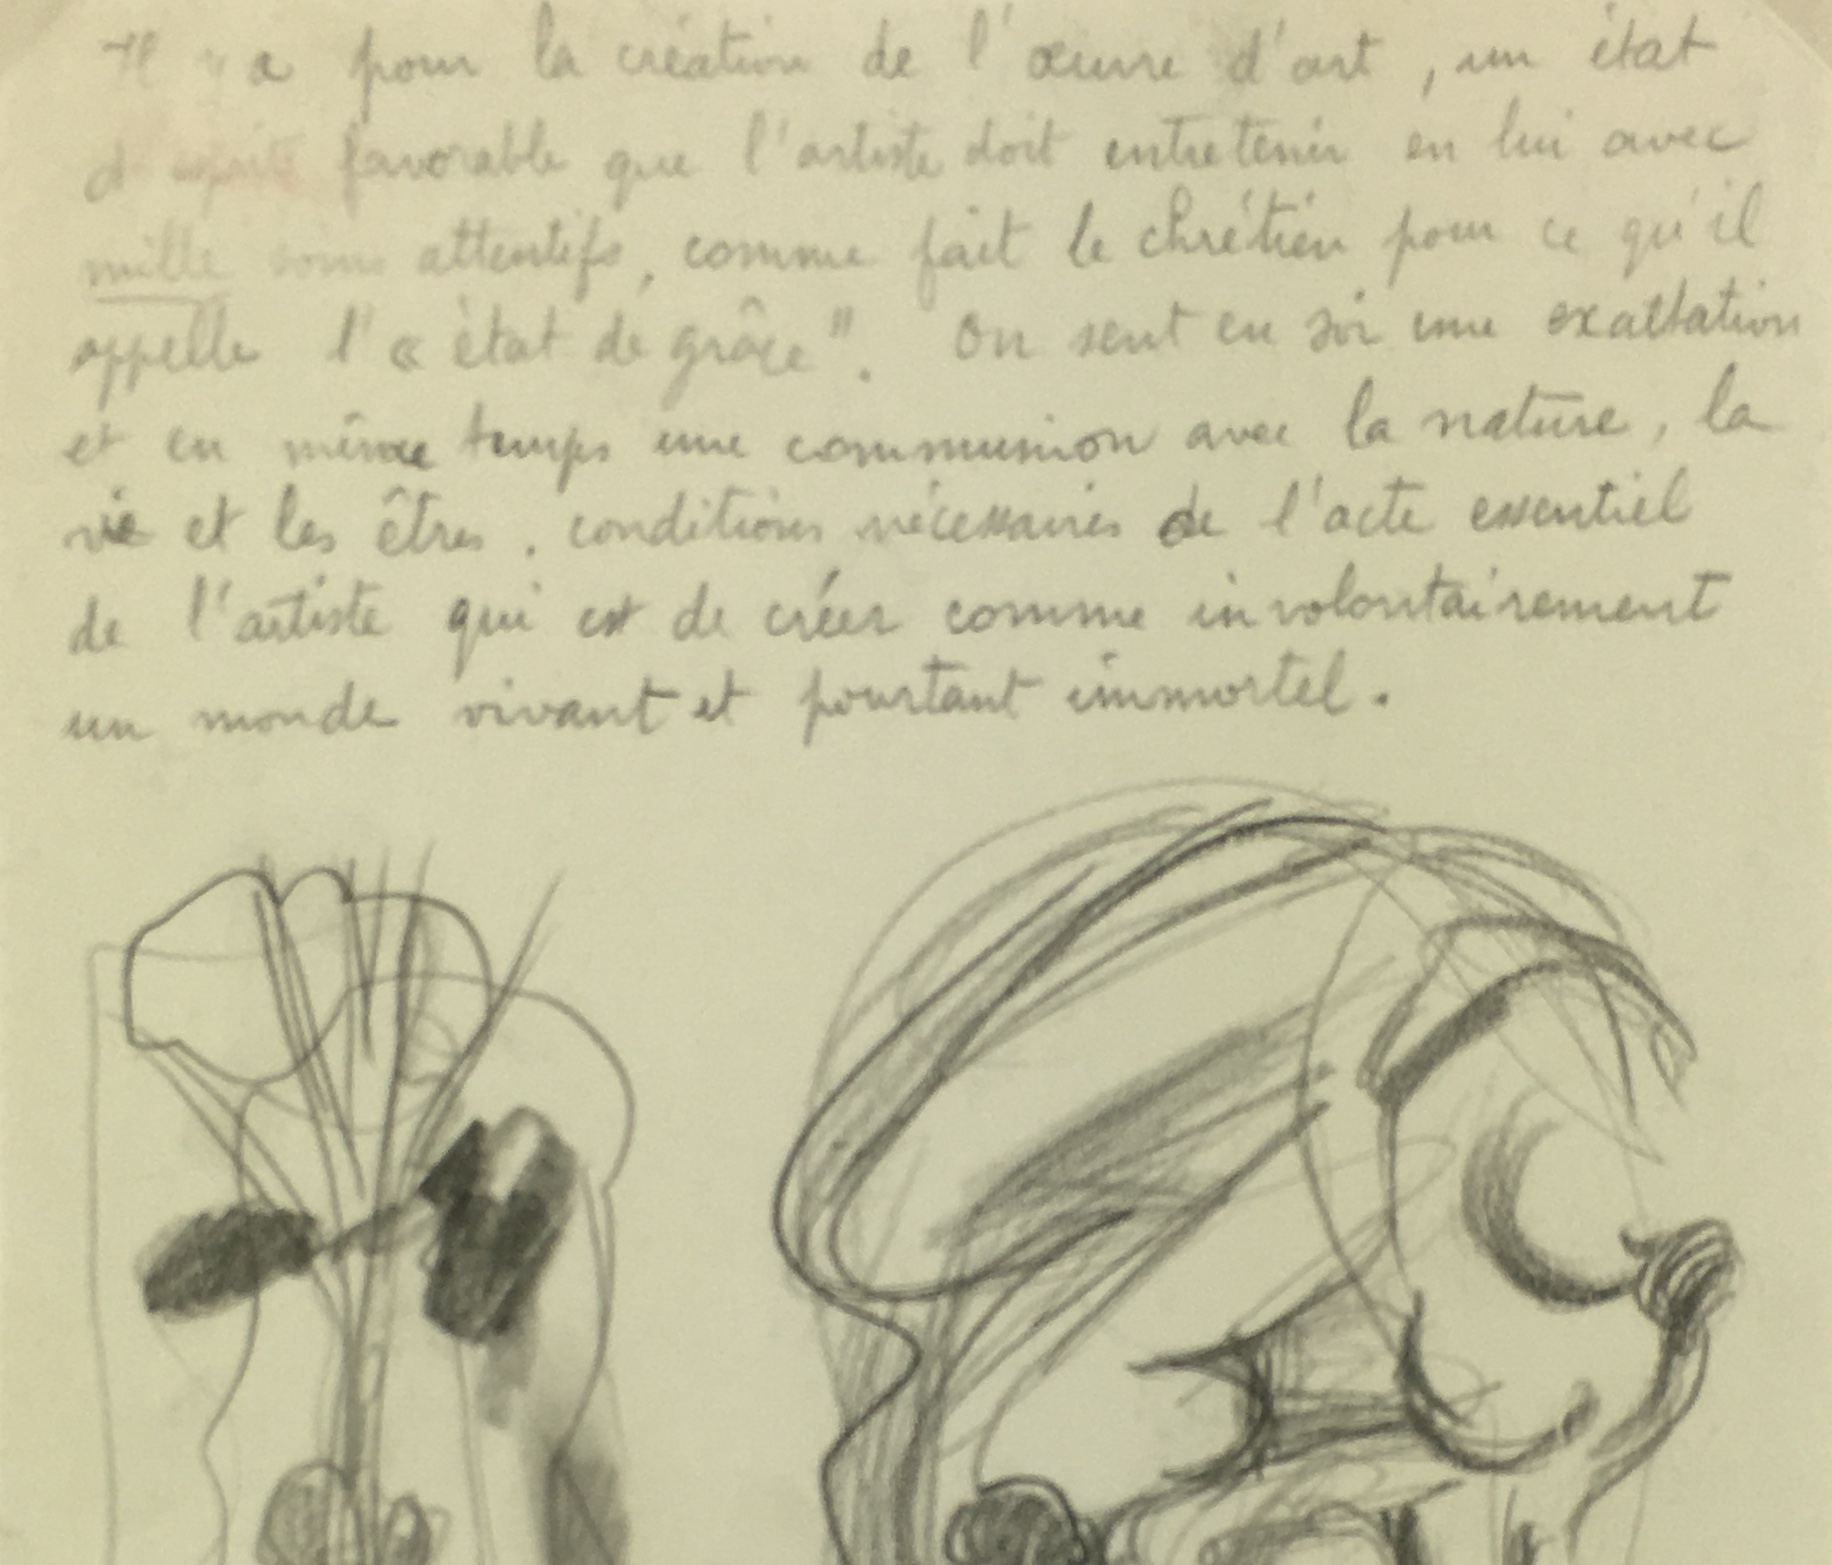 Il y a pour la création de l'œuvre d'art, un état
d'esprit favorable que l'artiste doit entretenir en lui avec
mille soins attentifs, comme fait le chrétien pour ce qu'il
appelle l'« état de grâce". On sent en soi une exaltation
et en même temps une communion avec la nature, la
vie et les êtres. conditions nécessaires de l'acte essentiel
de l'artiste qui est de créer comme involontairement
un monde vivant et pourtant immortel.